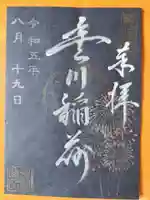 来拝
豊川稲荷
令和五年
八月十九日